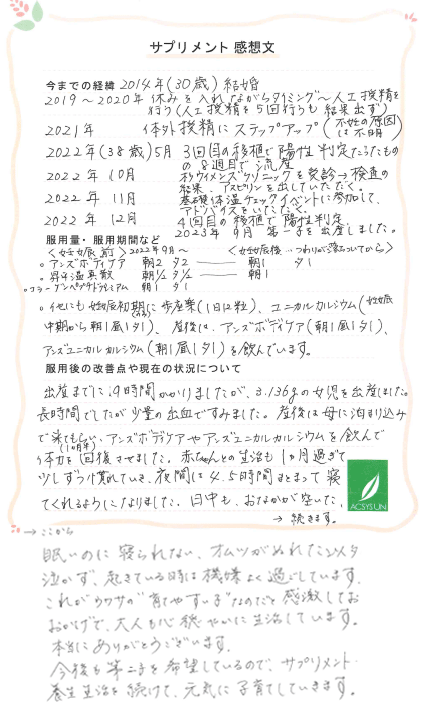 サプリメント 感想文
今までの経緯 2014年(30歳)結婚
2019～2020年 休みを入れながらタイミング～人工授精を
行う(人工授精を5回行うも結果出ず)
2021年 体外授精にステップアップ(不妊の原因は不明)
2022年(38歳)5月 3回目の移植で陽性判定だったものの8週目で流産
2022年 10月 杉ウイメンズクリニックを受診→検査の
結果、アスピリンを出していただく。
2022年 11月 基礎体温チェックイベントに参加して、
アドバイスをいただく。
2022年 12月 4回目の移植で陽性判定、
2023年 9月 第一子を出産しました。
服用量・服用期間など
<妊娠前> 2022年9月～ <妊娠後…つわりが落ちついてから>
○アンズボディケア 朝2 夕2 ── 朝1 夕1
○昇 温真数 朝1/2 夕1/2 ── 朝1
○コラーゲンペプチドプレミアム 朝1 夕1
○他にも妊娠初期に(のみ)歩産楽(1日12粒)、ユニカルカルシウム(妊娠
中期から朝1昼1夕1)、産後は、アンズボディケア(朝1昼1夕1)、
アンズユニカルカルシウム(朝1昼1夕1)を飲んでいます。
服用後の改善点や現在の状況について
出産までに、9時間かかりましたが、3,136gの女児を出産しました。
長時間でしたが少量の出血ですみました。産後は母に泊まり込み
で来てもらい、(1ヶ月半)アンズボディケアやアンズユニカルカルシウムを飲んで
体力を回復させました。赤ちゃんとの生活も1ヶ月過ぎて
少しずつ慣れていき、夜間は4.5時間まとまって寝
てくれるようになりました。日中も、おなかが空いた、
→続きます。
ACSYSUN
→ここから
眠いのに寝られない、オムツがぬれた以外は
泣かず、起きている時は機嫌よく過ごしています。
これがウワサの"育てやすい子"なのだと感激してお
おかげで、大人も心穏やかに生活しています。
本当にありがとうございます。
今後も第二子を希望しているので、サプリメント・
養生生活を続けて、元気に子育てしていきます。